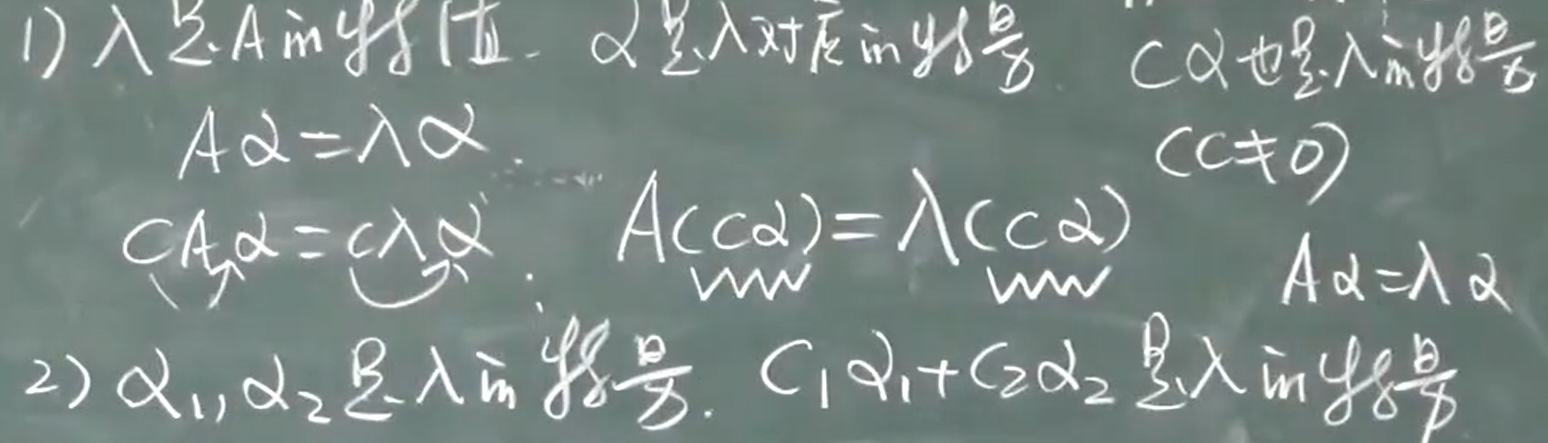 1) λ是A的特值. α是λ对应的特量. Cα也是λ的特量
Aα=λα. (C≠0)
CAα=Cλα. A(Cα)=λ(Cα)
Aα=λα
2) α₁,α₂是λ的特量. C₁α₁+C₂α₂是λ的特量